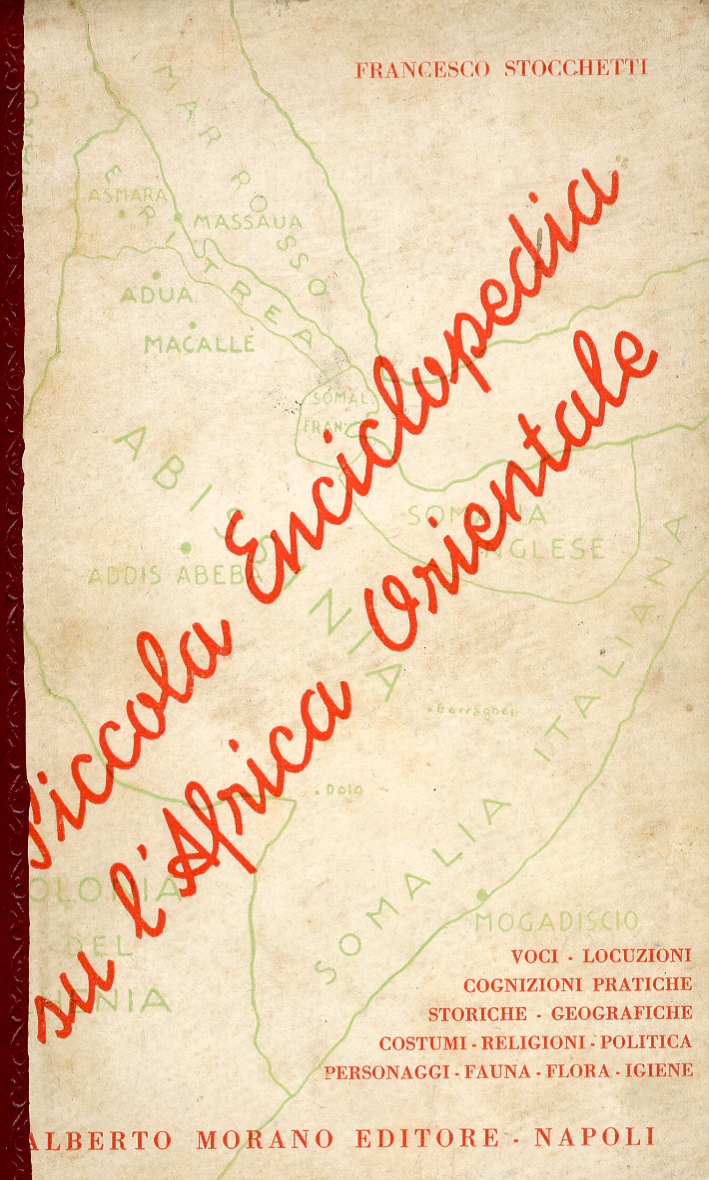 FRANCESCO STOCCHETTI
MAR ROSSO
ERITREA
ASMARA
MASSAUA
ADUA
MACALLÈ
SOMAL.
FRAN.
ABISSINIA
SOMALIA
INGLESE
ADDIS ABEBA
Piccola Enciclopedia
su l'Africa Orientale
Dolo
SOMALIA ITALIANA
OLONIA
DEL
MOGADISCIO
VOCI - LOCUZIONI
COGNIZIONI PRATICHE
STORICHE - GEOGRAFICHE
COSTUMI - RELIGIONI - POLITICA
PERSONAGGI - FAUNA - FLORA - IGIENE
ALBERTO MORANO EDITORE - NAPOLI